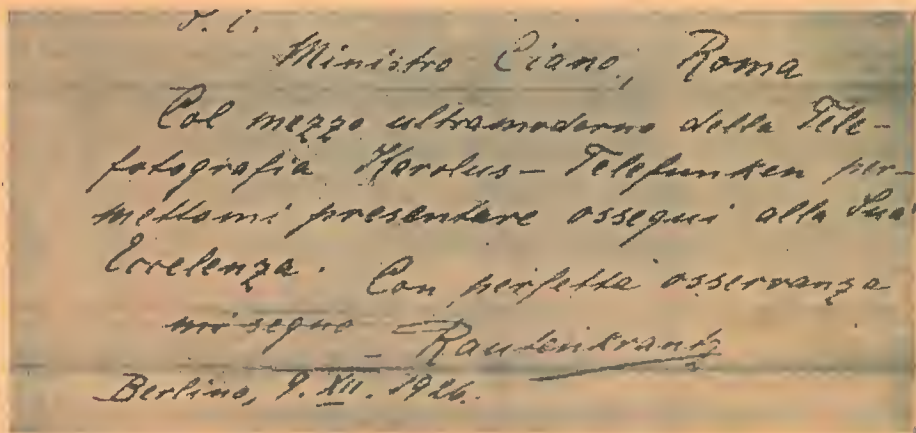 S. E.
Ministro Ciano, Roma
Col mezzo ultramoderno della Tele-
fotografia Karolus - Telefunken per-
mettomi presentare ossequi alla Sua
Eccelenza. Con perfetta osservanza
mi segno - Rautenkrantz
Berlino, 9. XII. 1926.